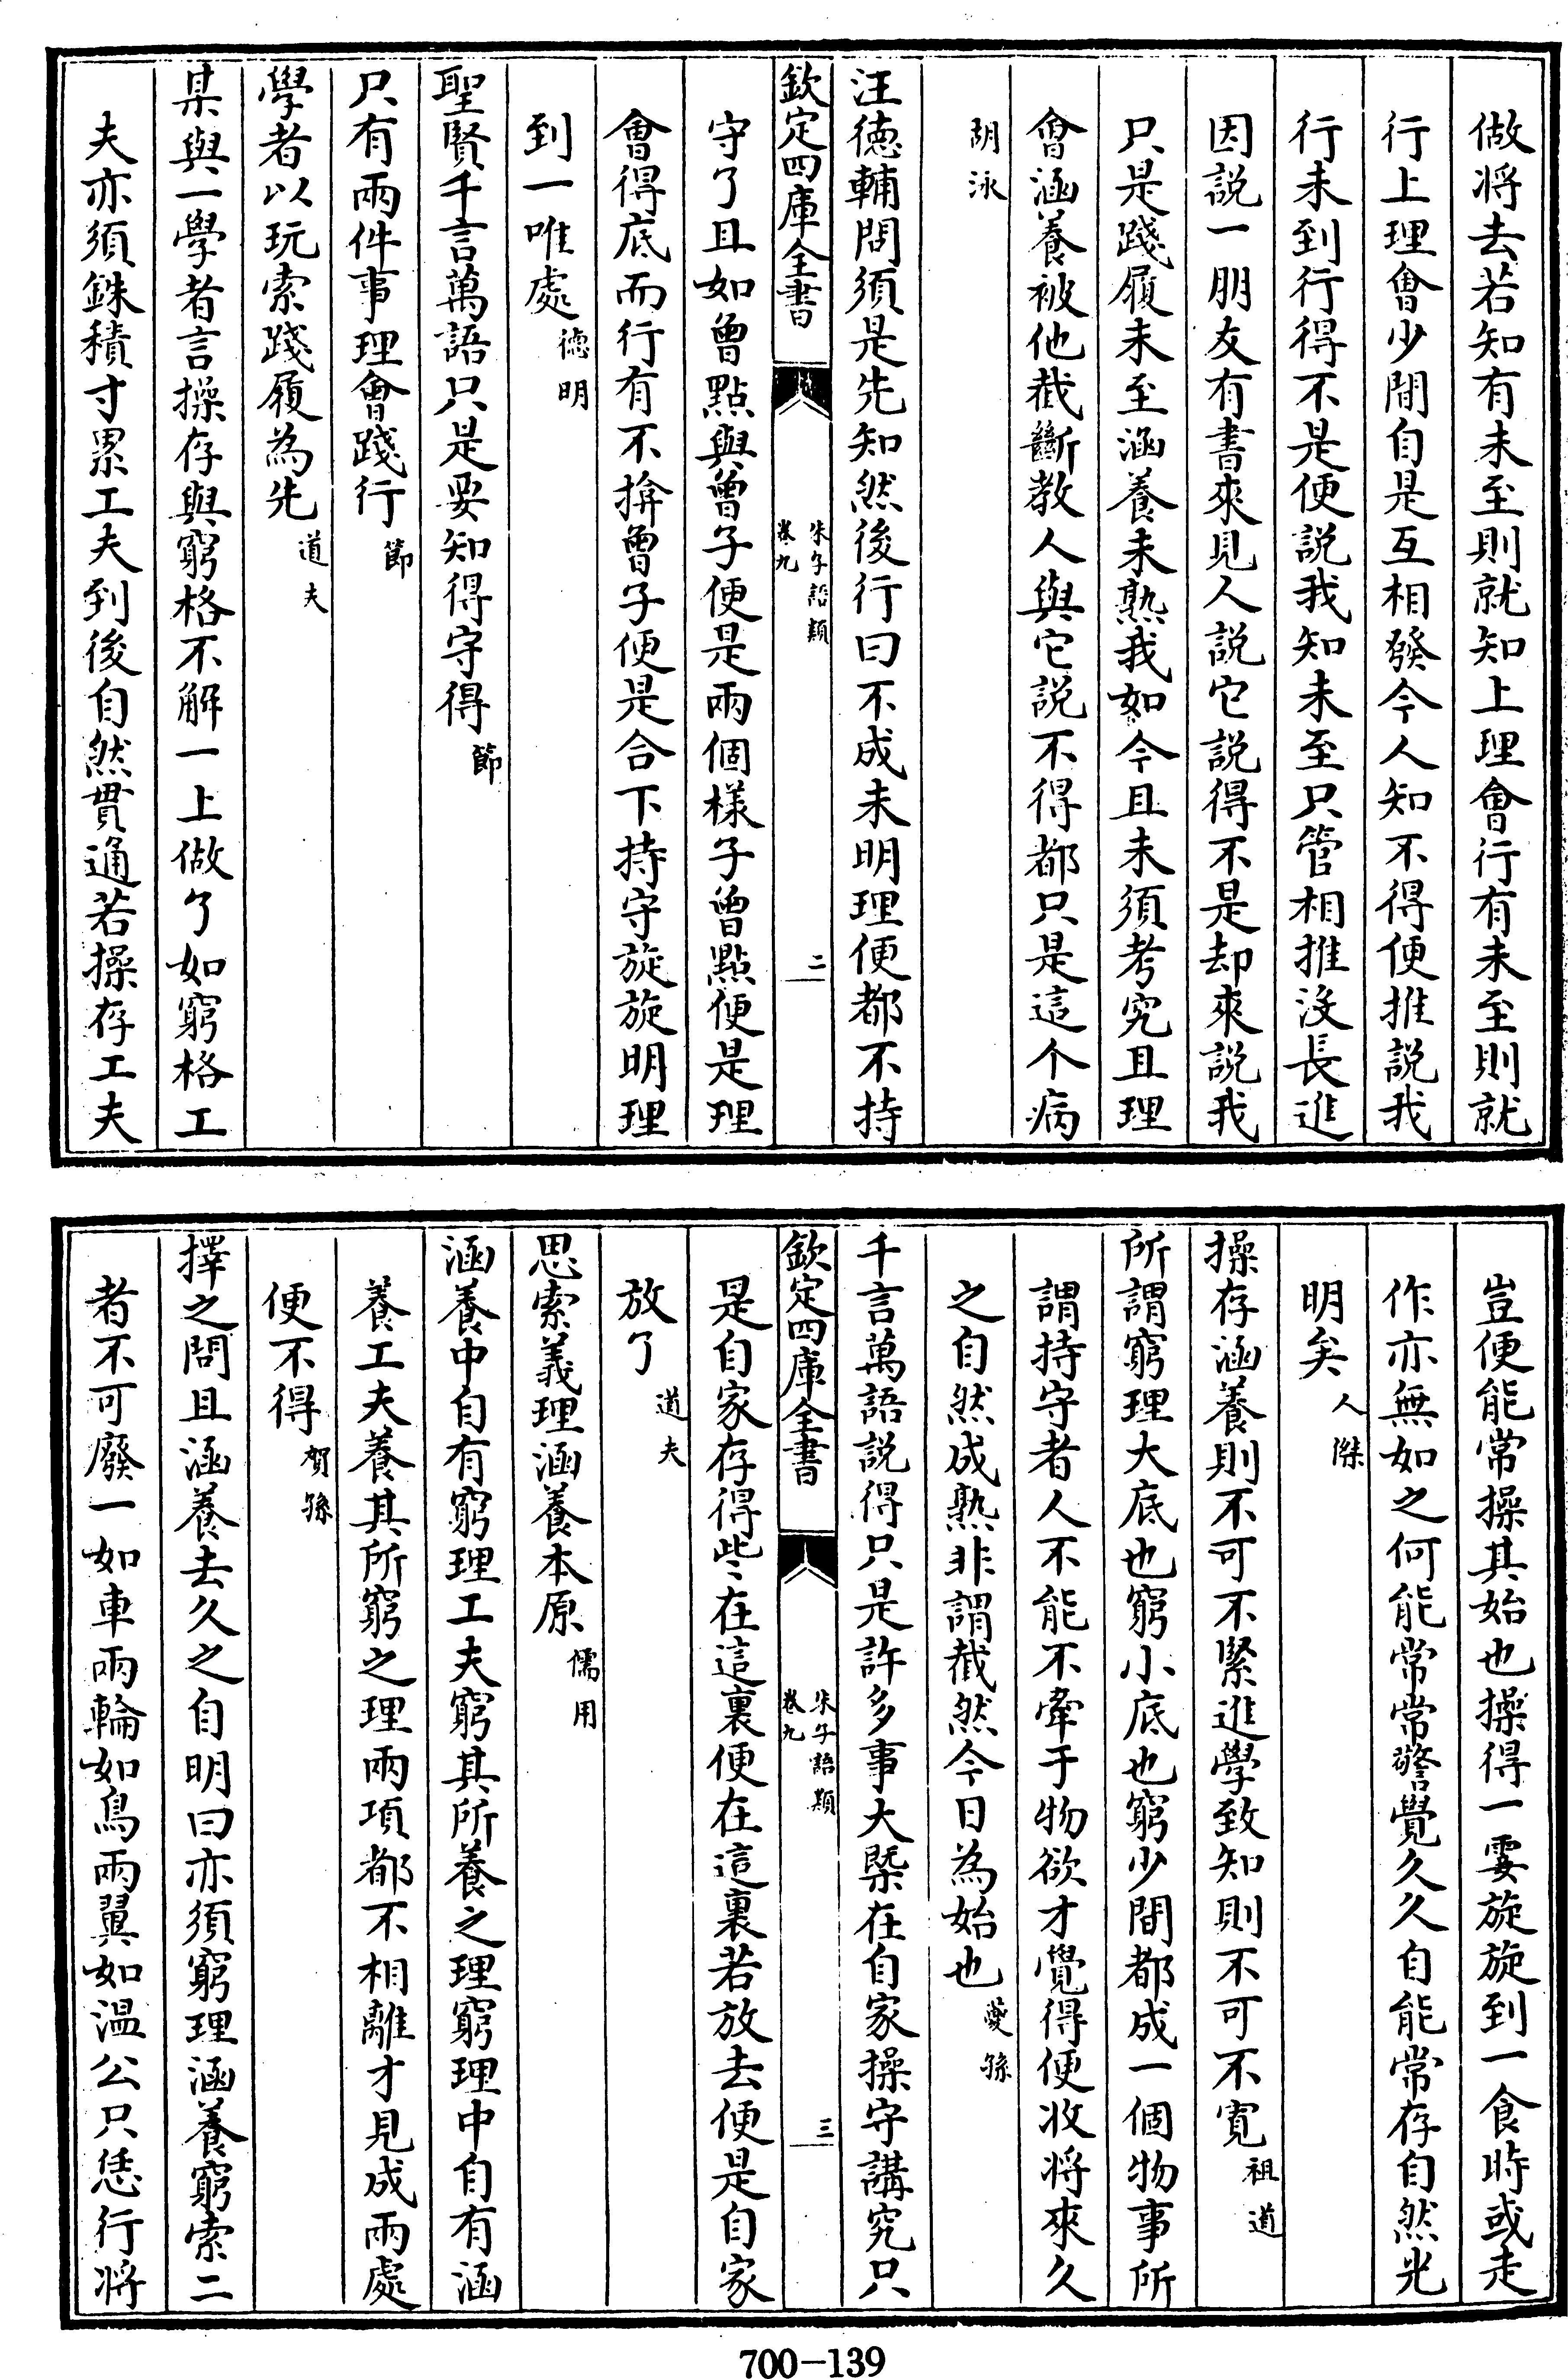 做将去若知有未至則就知上理會行有未至則就
行上理會少間自是互相發今人知不得便推説我
行未到行得不是便説我知未至只管相推沒長進
因説一朋友有書來見人説它説得不是却來説我
只是踐履未至涵養未熟我如今且未須考究且理
會涵養被他截斷教人與它説不得都只是這个病
胡泳
汪德輔問須是先知然後行曰不成未明理便都不持
欽定四庫全書
朱子語類
卷九
二
守了且如曾點與曾子便是兩個樣子曾點便是理
會得底而行有不揜曾子便是合下持守旋旋明理
到一唯處德明
聖賢千言萬語只是要知得守得節
只有兩件事理會踐行節
學者以玩索踐履為先道夫
某與一學者言操存與窮格不解一上做了如窮格工
夫亦須銖積寸累工夫到後自然貫通若操存工夫
豈便能常操其始也操得一霎旋旋到一食時或走
作亦無如之何能常常警覺久久自能常存自然光
明矣人傑
操存涵養則不可不緊進學致知則不可不寛祖道
所謂窮理大底也窮小底也窮少間都成一個物事所
謂持守者人不能不牽于物欲才覺得便收将來久
之自然成熟非謂截然今日為始也夔孫
千言萬語説得只是許多事大槩在自家操守講究只
欽定四庫全書
朱子語類
卷九
三
是自家存得些在這裏便在這裏若放去便是自家
放了道夫
思索義理涵養本原儒用
涵養中自有窮理工夫窮其所養之理窮理中自有涵
養工夫養其所窮之理兩項都不相離才見成兩處
便不得賀孫
擇之問且涵養去久之自明曰亦須窮理涵養窮索二
者不可廢一如車兩輪如鳥兩翼如温公只恁行将
700-139